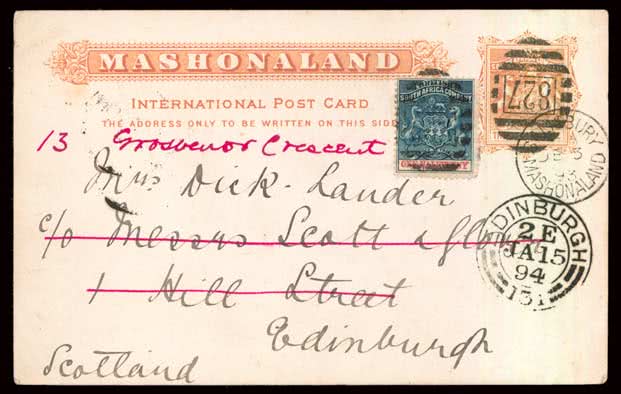 MASHONALAND
INTERNATIONAL POST CARD
THE ADDRESS ONLY TO BE WRITTEN ON THIS SIDE
SOUTH AFRICA COMPANY
827
BURY
MASHONALAND
13 Grosvenor Crescent
Miss Dick-Lauder
c/o Messrs Scott &
1 Hill Street
Edinburgh
Scotland
EDINBURGH
2 E
JA 15
94
131